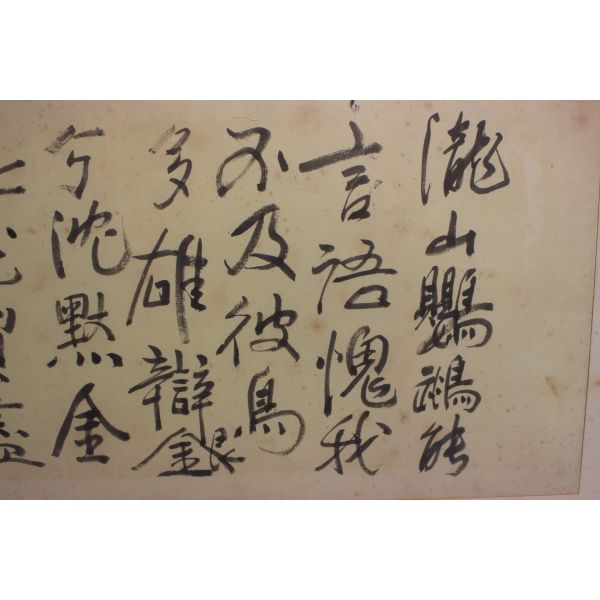 瀧山鸚鵡能
言語愧我
不及彼鳥
多雄辯銀
兮沈黙金